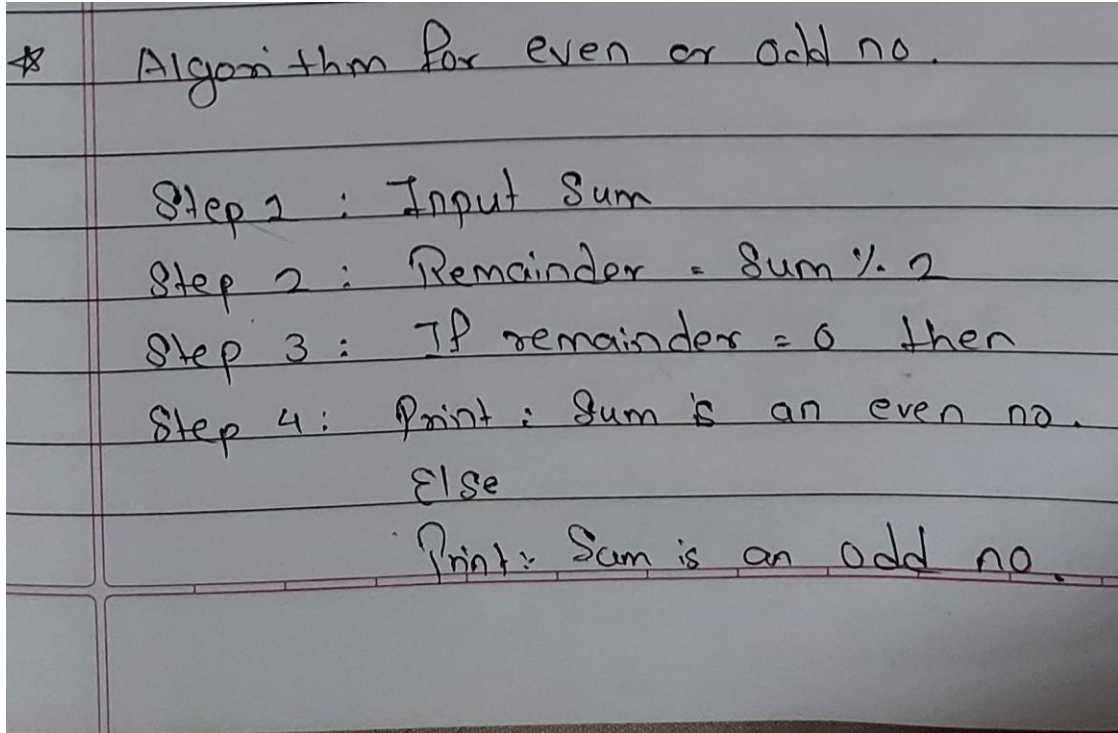 * Algorithm for even or odd no.
Step 1 : Input Sum
Step 2 : Remainder = Sum % 2
Step 3 : If remainder = 0 then
Step 4 : Print : Sum is an even no.
Else
Print : Sum is an odd no.